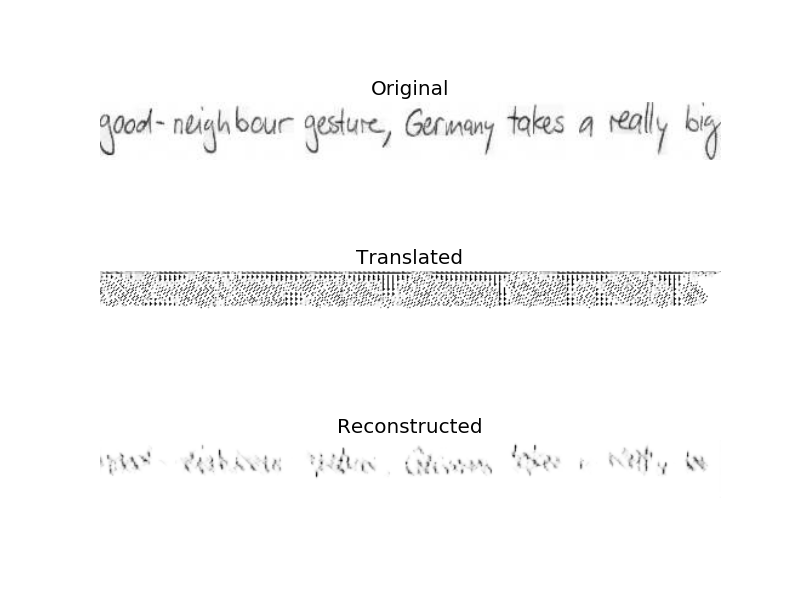 Original
good-neighbour gesture, Germany takes a really big
Translated
Reconstructed